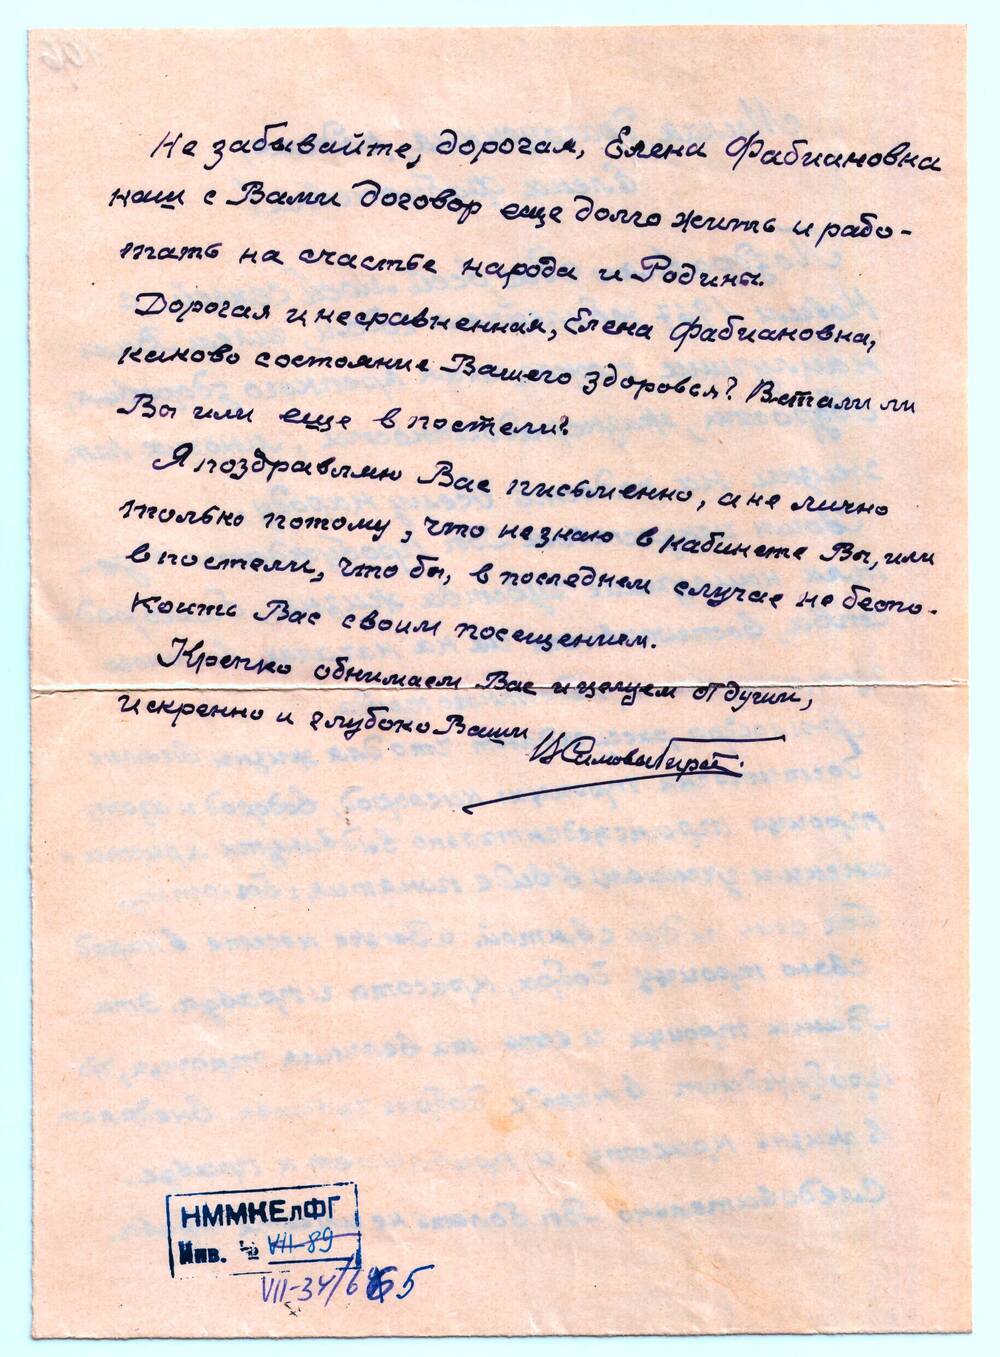 Не забывайте, дорогая, Елена Фабиановна
наш с Вами договор еще долго жить и рабо-
тать на счастье народа и Родины.
Дорогая и несравненная, Елена Фабиановна,
каково состояние Вашего здоровья? Встали ли
Вы или еще в постели?
Я поздравляю Вас письменно, а не лично
только потому, что не знаю в кабинете Вы, или
в постели, что бы, в последнем случае не беспо-
коить Вас своим посещением.
Крепко обнимаем Вас и целуем от души,
искренно и глубоко Ваши
НММКЕлФГ
Инв. № VII-89
VII-34/